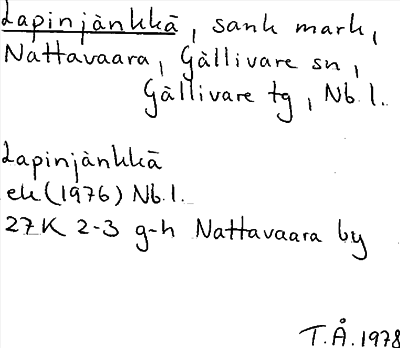 Lapinjänkkä, sank mark,
Nattavaara, Gällivare sn,
Gällivare tg, Nb. l.
Lapinjänkkä
ek (1976) Nb. l.
27K 2-3 g-h Nattavaara by
T.Å. 1978